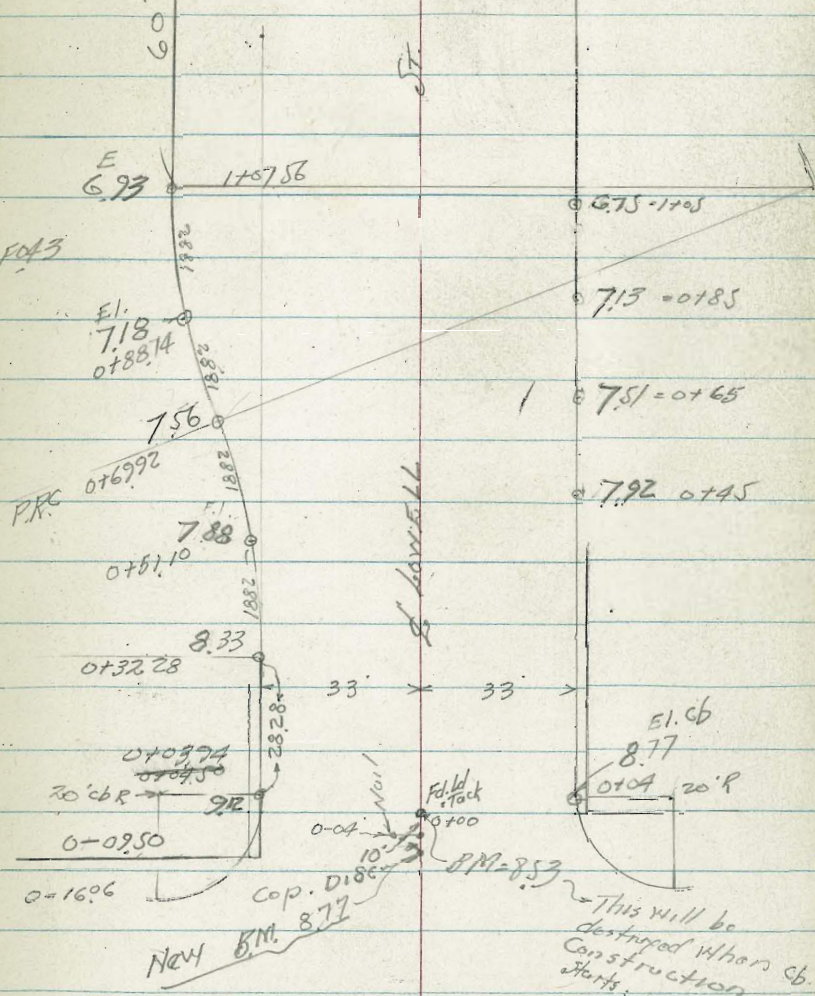 60
St.
E
6.93
1+07.56
6.75 - 1+05
18.82
7.13 = 0+85
El.
7.18
0+88.74
18.82
7.51 = 0+65
7.56
0+69.92
P.R.C
18.82
7.92 0+45
7.88
0+51.10
18.82
₵ LOWELL
8.33
0+32.28
33' 33'
28.28
El. Cb
8.77
0+04 20'R
0+03.94
0+04.50
20' Cb R
9.12
Nail
Fd. Ld
Tack
0+00
0-04
0-09.50
10'
0-16.06
Cop. Disc
BM = 8.53
New B.M. 8.77
This will be
destroyed when cb.
Construction
Starts.